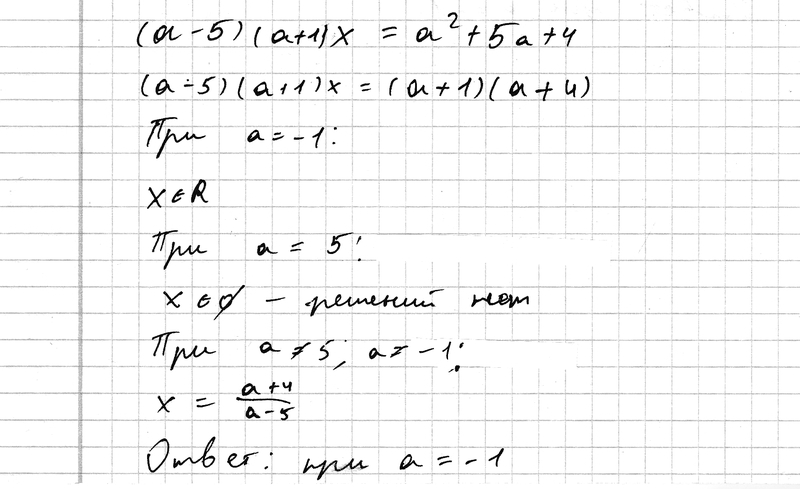 (a-5)(a+1)x = a²+5a+4
(a-5)(a+1)x = (a+1)(a+4)
При a=-1:
x∈R
При a = 5:
x∈∅ – решений нет
При a≠5; a≠-1:
x = (a+4)/(a-5)
Ответ: при a=-1